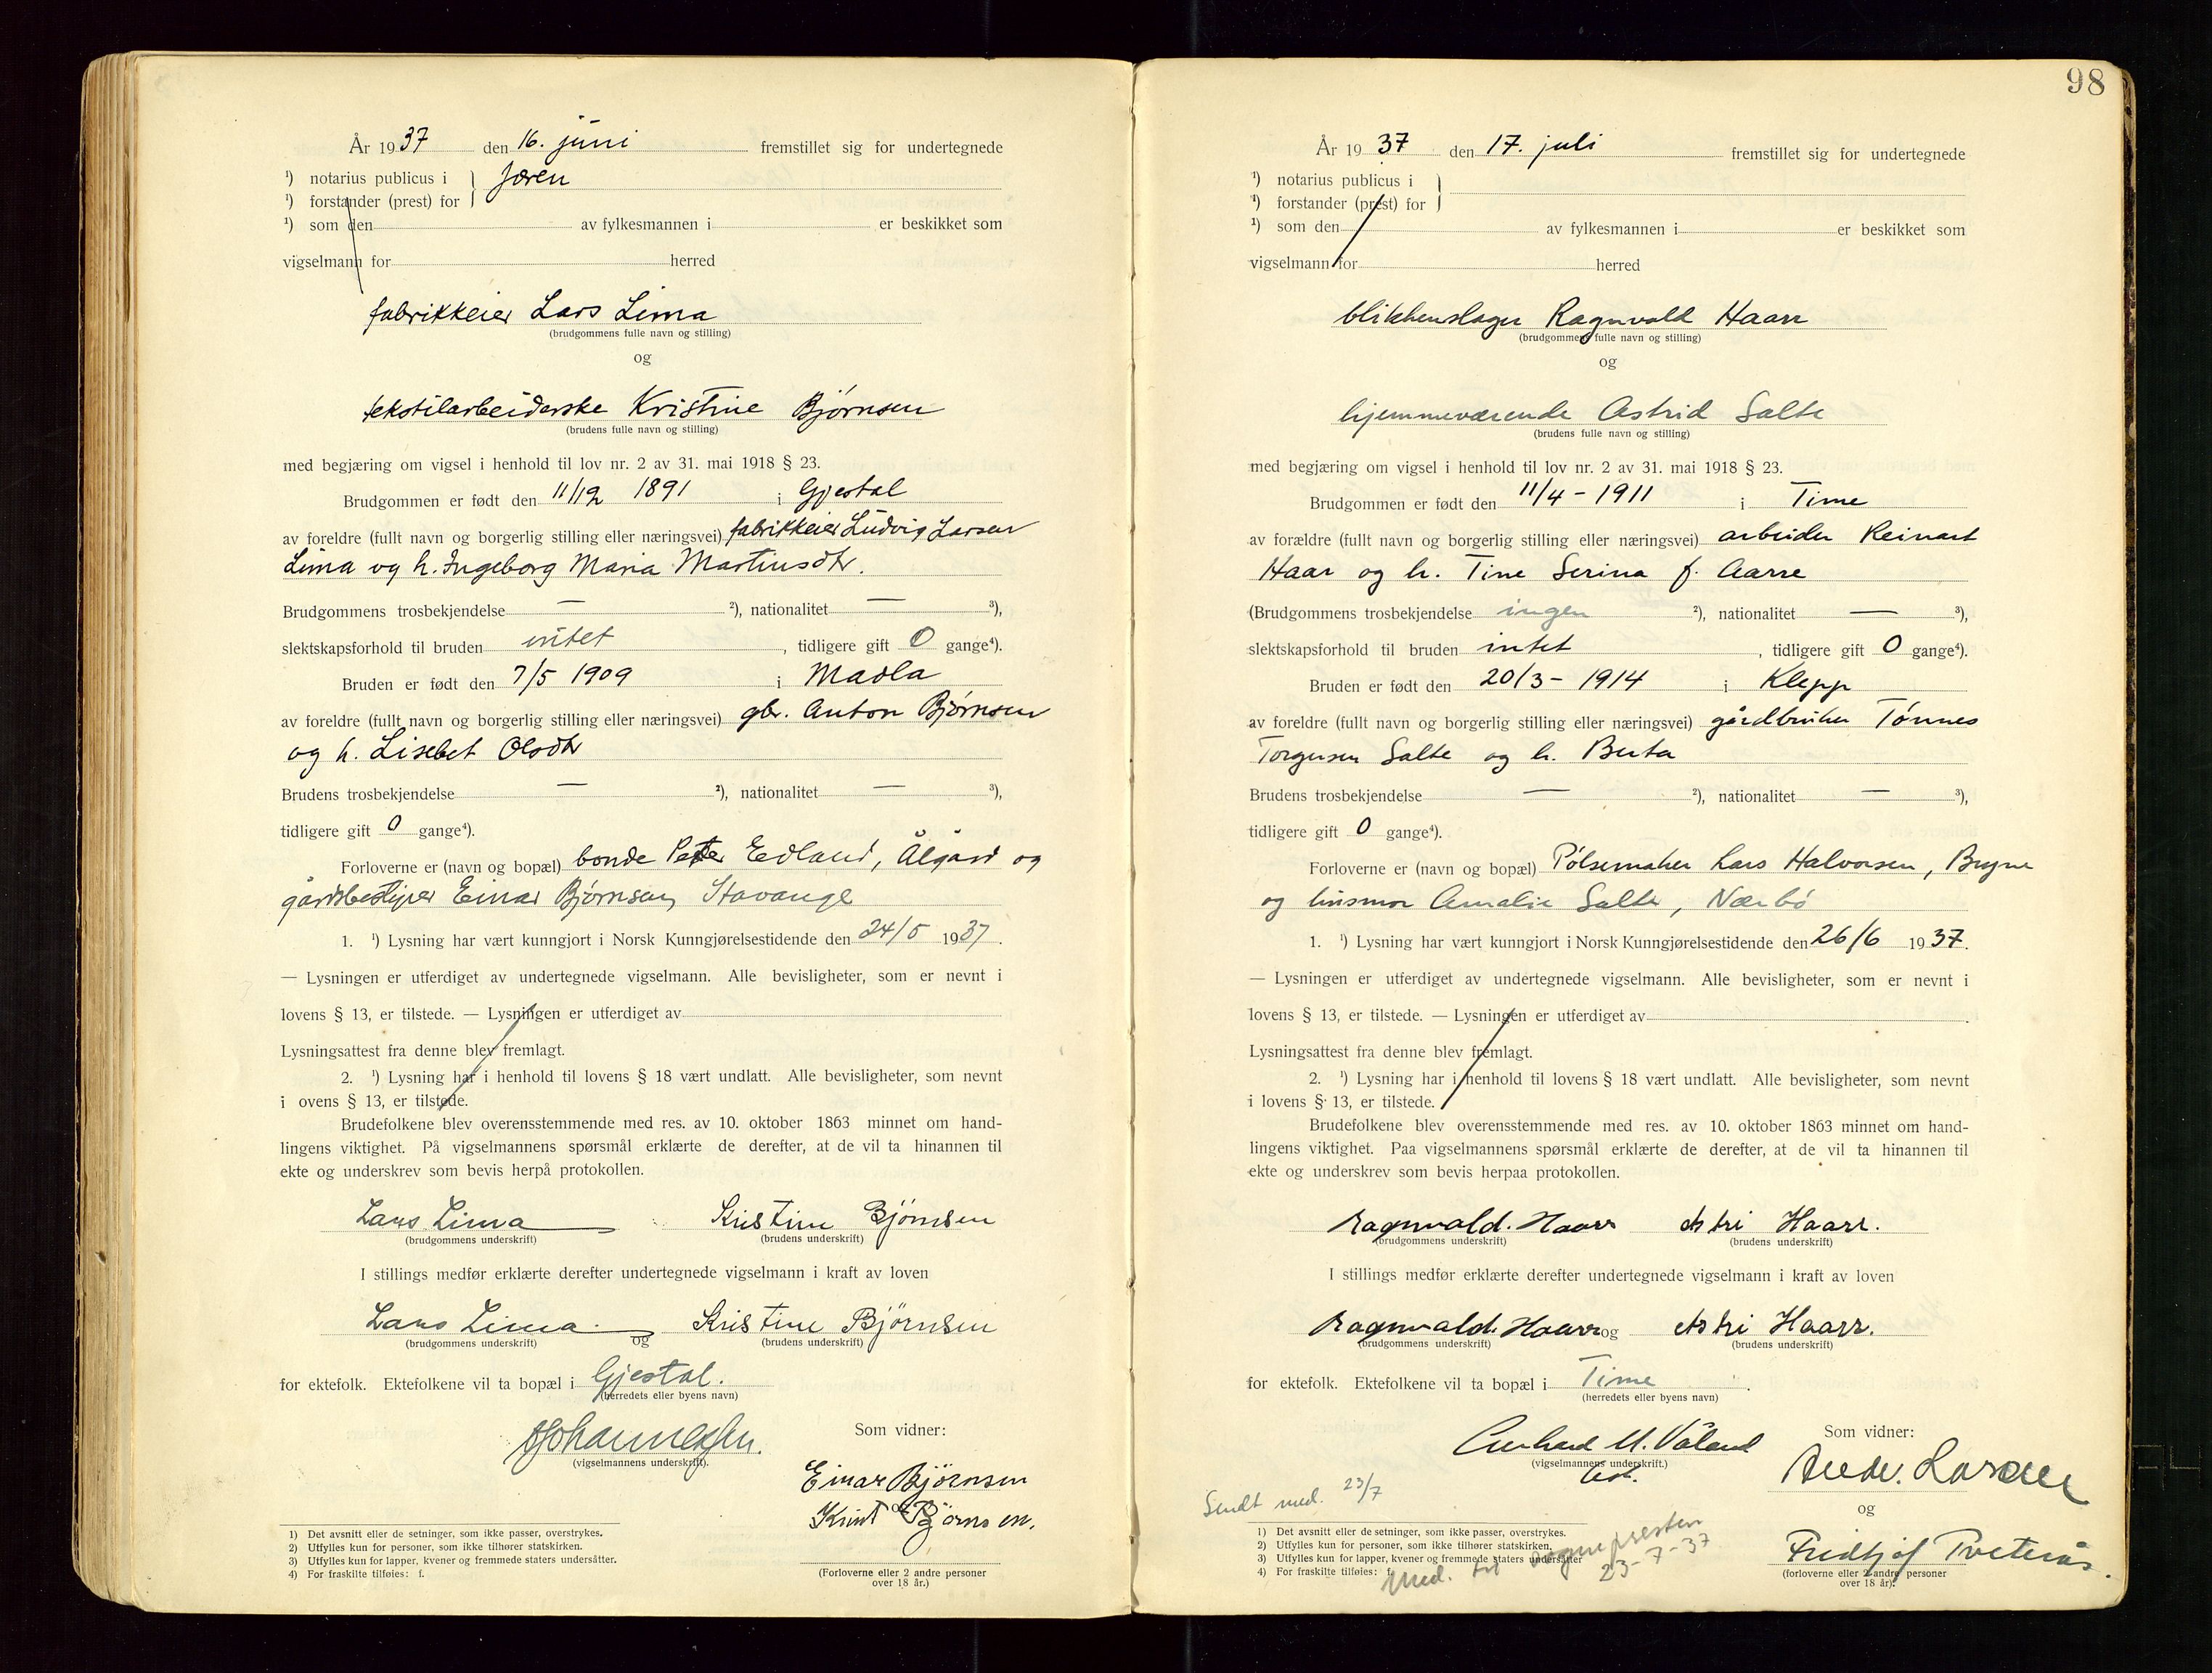 År 1937 den 16. juni fremstillet sig for undertegnede
¹) notarius publicus i } Jæren
¹) forstander (prest) for
¹) som den av fylkesmannen i er beskikket som
vigselmann for herred
fabrikkeier Lars Lima
(brudgommens fulle navn og stilling)
og
tekstilarbeiderske Kristine Bjørnsen
(brudens fulle navn og stilling)
med begjæring om vigsel i henhold til lov nr. 2 av 31. mai 1918 § 23.
Brudgommen er født den 11/12 1891 i Gjestal
av foreldre (fullt navn og borgerlig stilling eller næringsvei) fabrikkeier Ludvig Larsen
Lima og h. Ingeborg Maria Martinsdtr.
Brudgommens trosbekjendelse — ²), nationalitet — ³),
slektskapsforhold til bruden intet , tidligere gift 0 gange⁴).
Bruden er født den 7/5 1909 i Madla
av foreldre (fullt navn og borgerlig stilling eller næringsvei) gbr. Anton Bjørnsen
og h. Lisebet Olsdtr
Brudens trosbekjendelse — ²), nationalitet — ³),
tidligere gift 0 gange⁴).
Forloverne er (navn og bopæl) bonde Peder Edland, Ålgård og
gårdsbestyrer Einar Bjørnsen, Stavanger
1. ¹) Lysning har vært kunngjort i Norsk Kunngjørelsestidende den 24/5 1937.
— Lysningen er utferdiget av undertegnede vigselmann. Alle bevisligheter, som er nevnt i
lovens § 13, er tilstede. — Lysningen er utferdiget av
Lysningsattest fra denne blev fremlagt.
2. ¹) Lysning har i henhold til lovens § 18 vært undlatt. Alle bevisligheter, som nevnt
i ovens § 13, er tilstede.
Brudefolkene blev overensstemmende med res. av 10. oktober 1863 minnet om hand-
lingens viktighet. På vigselmannens spørsmål erklærte de derefter, at de vil ta hinannen til
ekte og underskrev som bevis herpå protokollen.
Lars Lima Kristine Bjørnsen
(brudgommens underskrift) (brudens underskrift)
I stillings medfør erklærte derefter undertegnede vigselmann i kraft av loven
Lars Lima og Kristine Bjørnsen
(brudgommens underskrift) (brudens underskrift)
for ektefolk. Ektefolkene vil ta bopæl i Gjestal.
(herredets eller byens navn)
Johannessen.
(vigselmannens underskrift).
Som vidner:
Einar Bjørnsen
og
Knut Bjørnsen.
(Forloverne eller 2 andre personer
over 18 år.)
1) Det avsnitt eller de setninger, som ikke passer, overstrykes.
2) Utfylles kun for personer, som ikke tilhører statskirken.
3) Utfylles kun for lapper, kvener og fremmede staters undersåtter.
4) For fraskilte tilføies: f.
98
År 1937 den 17. juli fremstillet sig for undertegnede
¹) notarius publicus i }
¹) forstander (prest) for
¹) som den av fylkesmannen i er beskikket som
vigselmann for herred
blikkenslager Ragnvald Haarr
(brudgommens fulle navn og stilling)
og
hjemmeværende Astrid Salte
(brudens fulle navn og stilling)
med begjæring om vigsel i henhold til lov nr. 2 av 31. mai 1918 § 23.
Brudgommen er født den 11/4 - 1911 i Time
av forældre (fullt navn og borgerlig stilling eller næringsvei) arbeider Reinart
Haar og h. Tine Serina f. Aarre
(Brudgommens trosbekjendelse ingen ²), nationalitet — ³),
slektskapsforhold til bruden intet , tidligere gift 0 gange⁴).
Bruden er født den 20/3 - 1914 i Klepp
av foreldre (fullt navn og borgerlig stilling eller næringsvei) gårdbruker Tønnes
Torgersen Salte og h. Berta
Brudens trosbekjendelse — ²), nationalitet — ³),
tidligere gift 0 gange⁴).
Forloverne er (navn og bopæl) Pølsemaker Lars Halvorsen, Bryne
og husmor Amalie Salte, Nærbø
1. ¹) Lysning har vært kunngjort i Norsk Kunngjørelsestidende den 26/6 1937.
— Lysningen er utferdiget av undertegnede vigselmann. Alle bevisligheter, som er nevnt i
lovens § 13, er tilstede. — Lysningen er utferdiget av .
Lysningsattest fra denne blev fremlagt.
2. ¹) Lysning har i henhold til lovens § 18 vært undlatt. Alle bevisligheter, som nevnt
i lovens § 13, er tilstede.
Brudefolkene blev overensstemmende med res. av 10. oktober 1863 minnet om hand-
lingens viktighet. Paa vigselmannens spørsmål erklærte de derefter, at de vil ta hinannen til
ekte og underskrev som bevis herpaa protokollen.
Ragnvald. Haarr Astri Haarr.
(brudgommens underskrift) (brudens underskrift)
I stillings medfør erklærte derefter undertegnede vigselmann i kraft av loven
Ragnvald. Haarr og Astri Haarr.
(brudgommens underskrift) (brudens underskrift)
for ektefolk. Ektefolkene vil ta bopæl i Time .
(herredets eller byens navn)
M. Våland
(vigselmannens underskrift.)
Som vidner:
Larsen
og
Fridtjof Tveterås.
(forloverne eller 2 andre personer
over 18 år).
Sendt med. 23/7
Med. til sognepresten
23-7-37
1) Det avsnitt eller de setninger, som ikke passer, overstrykes.
2) Utfylles kun for personer, som ikke tilhører statskirken.
3) Utfylles kun for lapper, kvener og fremmede staters undersåtter
4) For fraskilte tilføies: f.